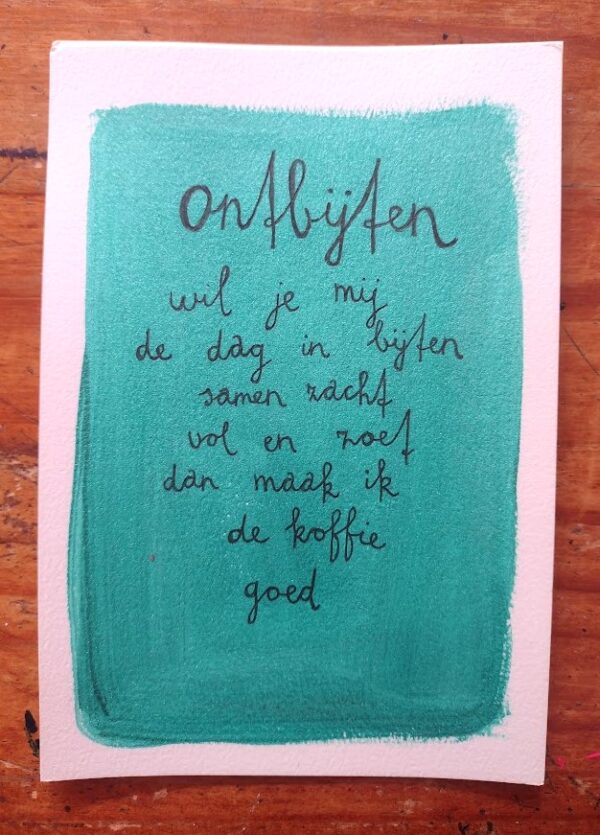 ontbijten
wil je mij
de dag in bijten
samen zacht
vol en zoet
dan maak ik
de koffie
goed